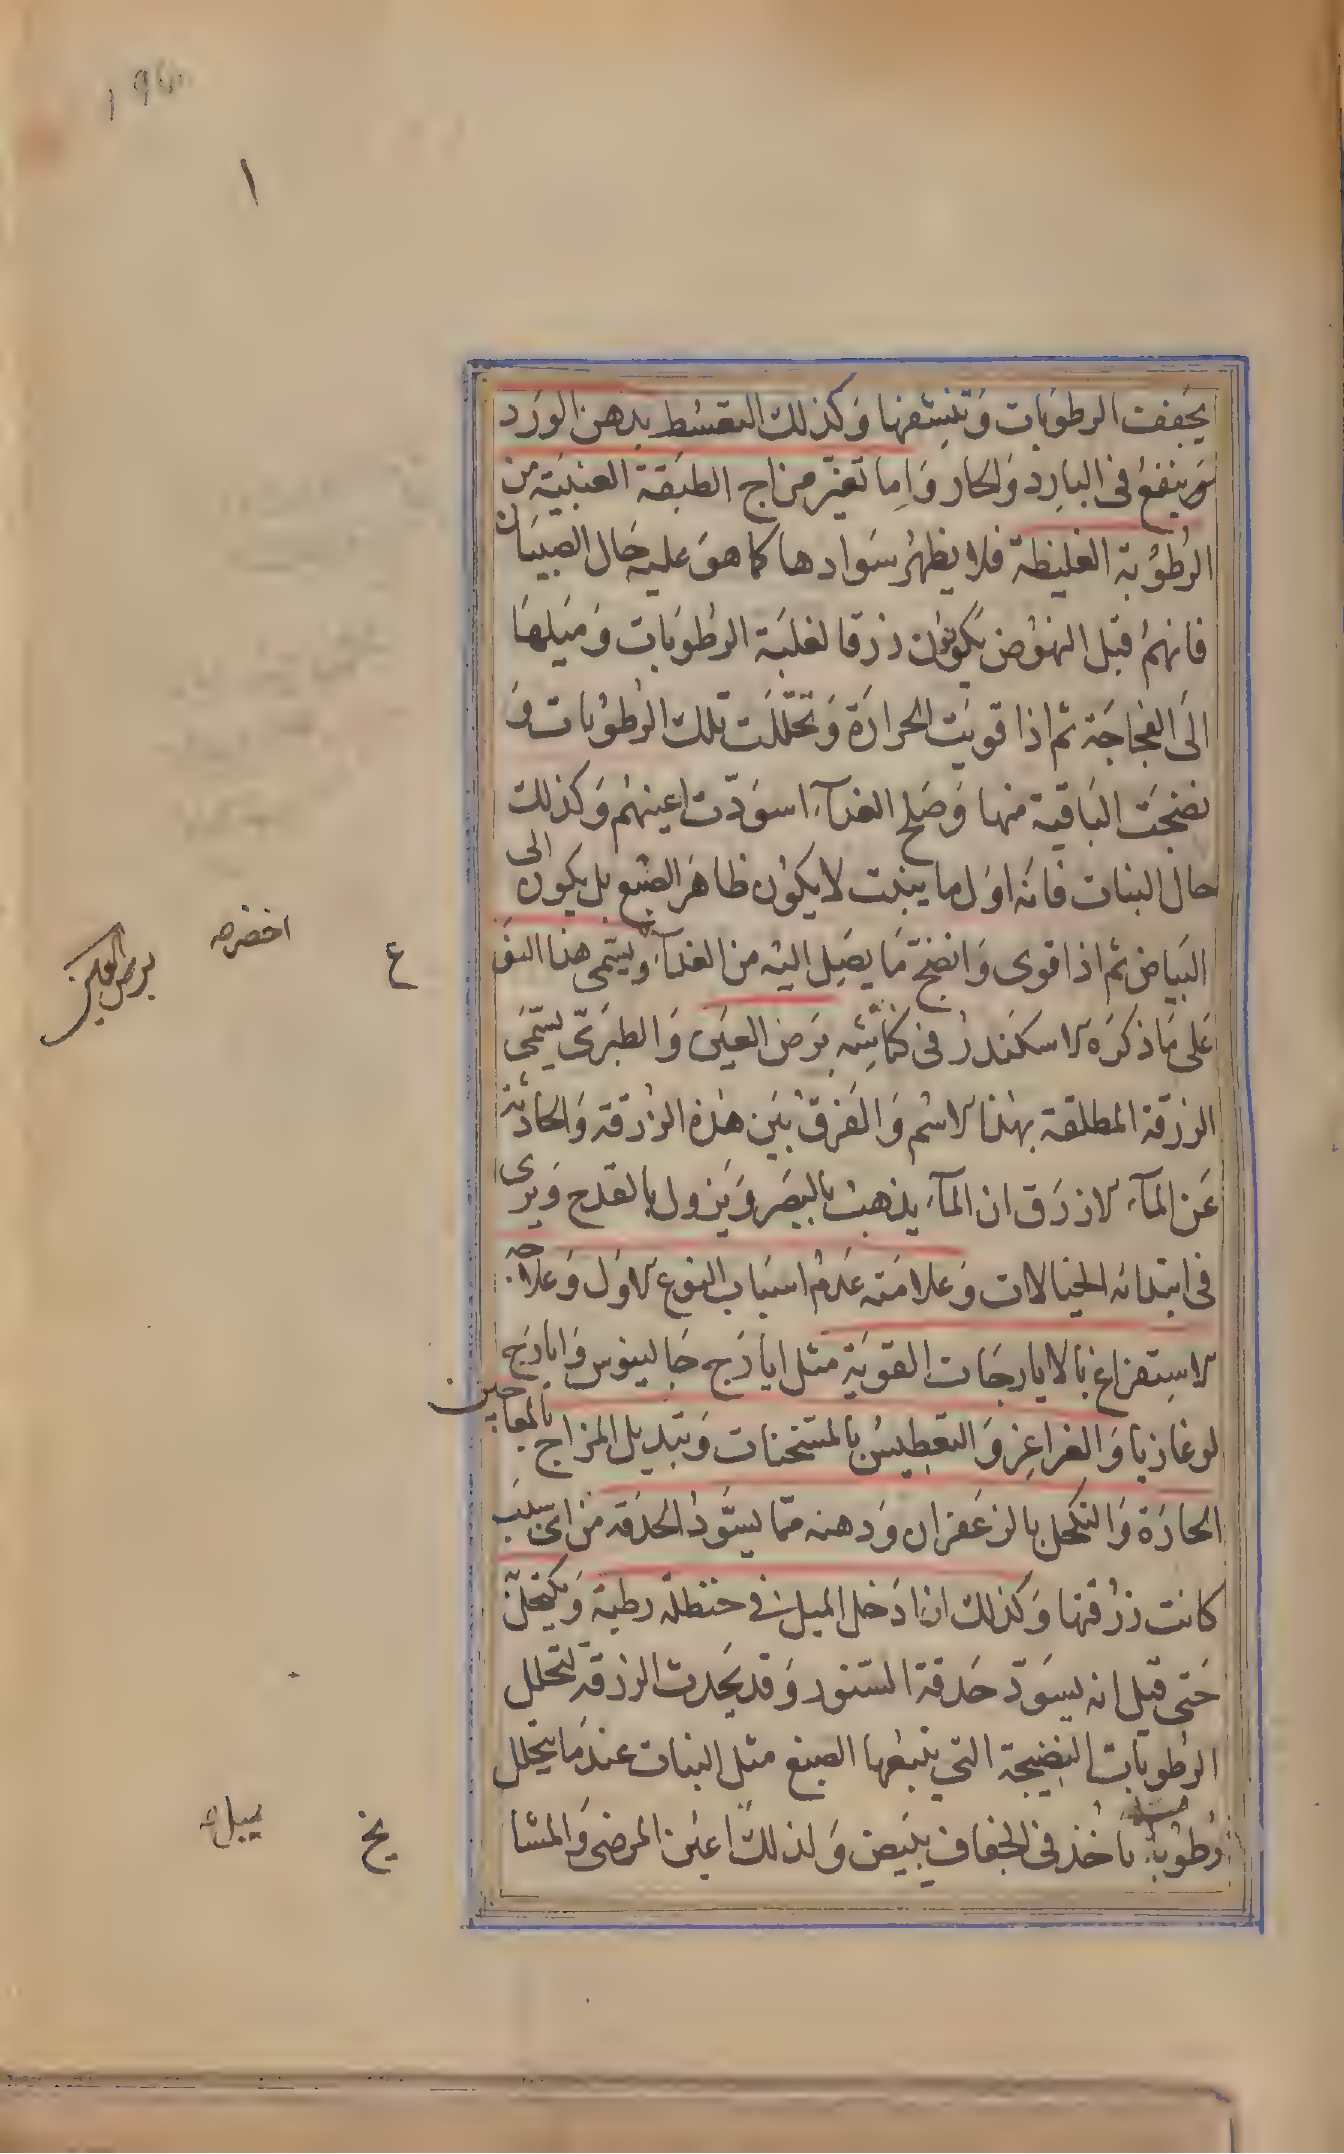 ١
يجفف الرطوبات وتنشفها وكذلك التقسط بدهن الورد
وينفع فى البارد والحار واما تغير مزاج الطبقة العنبية من
الرطوبة الغليظة فلا يظهر سوادها كما هو عليه حال الصبيان
فانهم قبل النهوض يكونون زرقا لغلبة الرطوبات وميلها
الى الفجاجة ثم اذا قويت الحرارة وتحللت تلك الرطوبات و
نضجت الباقية منها وصلح الغذآء اسودت اعينهم وكذلك
حال النبات فانه اول ما ينبت لا يكون ظاهر الصبغ بل يكون الى
البياض ثم اذا قوى وانضج ما يصل اليه من الغذآء ويسمى هذا النو
ع
اخضره
برص العين
على ما ذكره الاسكندر فى كناشه برص العين والطبرى يسمى
الزرقة المطلقة بهذا الاسم والفرق بين هذه الزرقة والحادثة
عن المآء الازرق ان المآء يذهب بالبصر ويزول بالقدح ويرى
فى ابتدائه الخيالات وعلامته عدم اسباب النوع الاول وعلاجه
الاستفراغ بالايارجات القوية مثل ايارج جالينوس وايارج
لوغاذيا والغراغر والتعطيس بالمسخنات وتبديل المزاج بالمعاجين
الحارة والتكحل بالزعفران ودهنه مما يسود الحدقة من اى سبب
كانت زرقتها وكذلك اذا ادخل الميل فى حنظلة رطبة ويكتحل
حتى قيل انه يسود حدقة السنور وقد يحدث الزرقة لتحلل
الرطوبات النضيجة التى يتبعها الصبغ مثل النبات عندما يتحلل
رطوبة ياخذ فى الجفاف يبيض ولذلك اعين المرضى والمشا
يخ